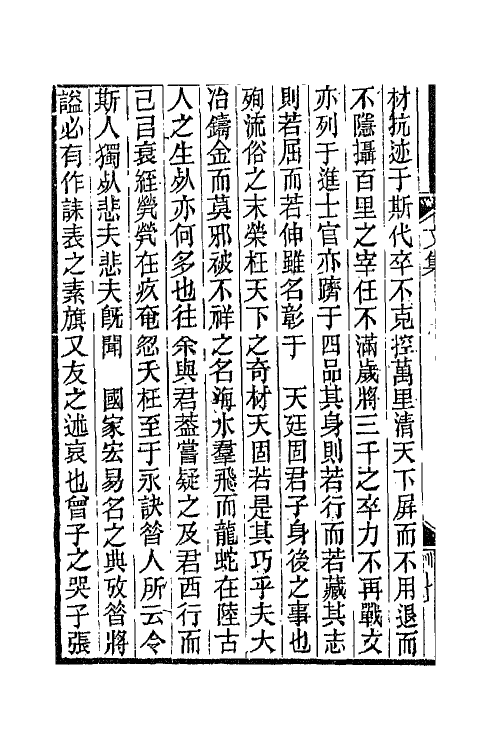 文集
材抗迹于斯代卒不克控萬里清天下屏而不用退而
不隱攝百里之宰任不滿歲將三千之卒力不再戰文
亦列于進士官亦躋于四品其身則若行而若藏其志
則若屈而若伸雖名彰于　天廷固君子身後之事也
殉流俗之末榮枉天下之奇材天固若是其巧乎夫大
冶鑄金而莫邪被不祥之名海水羣飛而龍蛇在陸古
人之生㷼亦何多也往余與君葢嘗疑之及君西行而
己㠯衰絰煢煢在疚奄忽夭枉至于永訣昝人所云令
斯人獨㷼悲夫悲夫旣聞　國家宏易名之典攷昝將
謚必有作誄表之素旗又友之述哀也曾子之哭子張